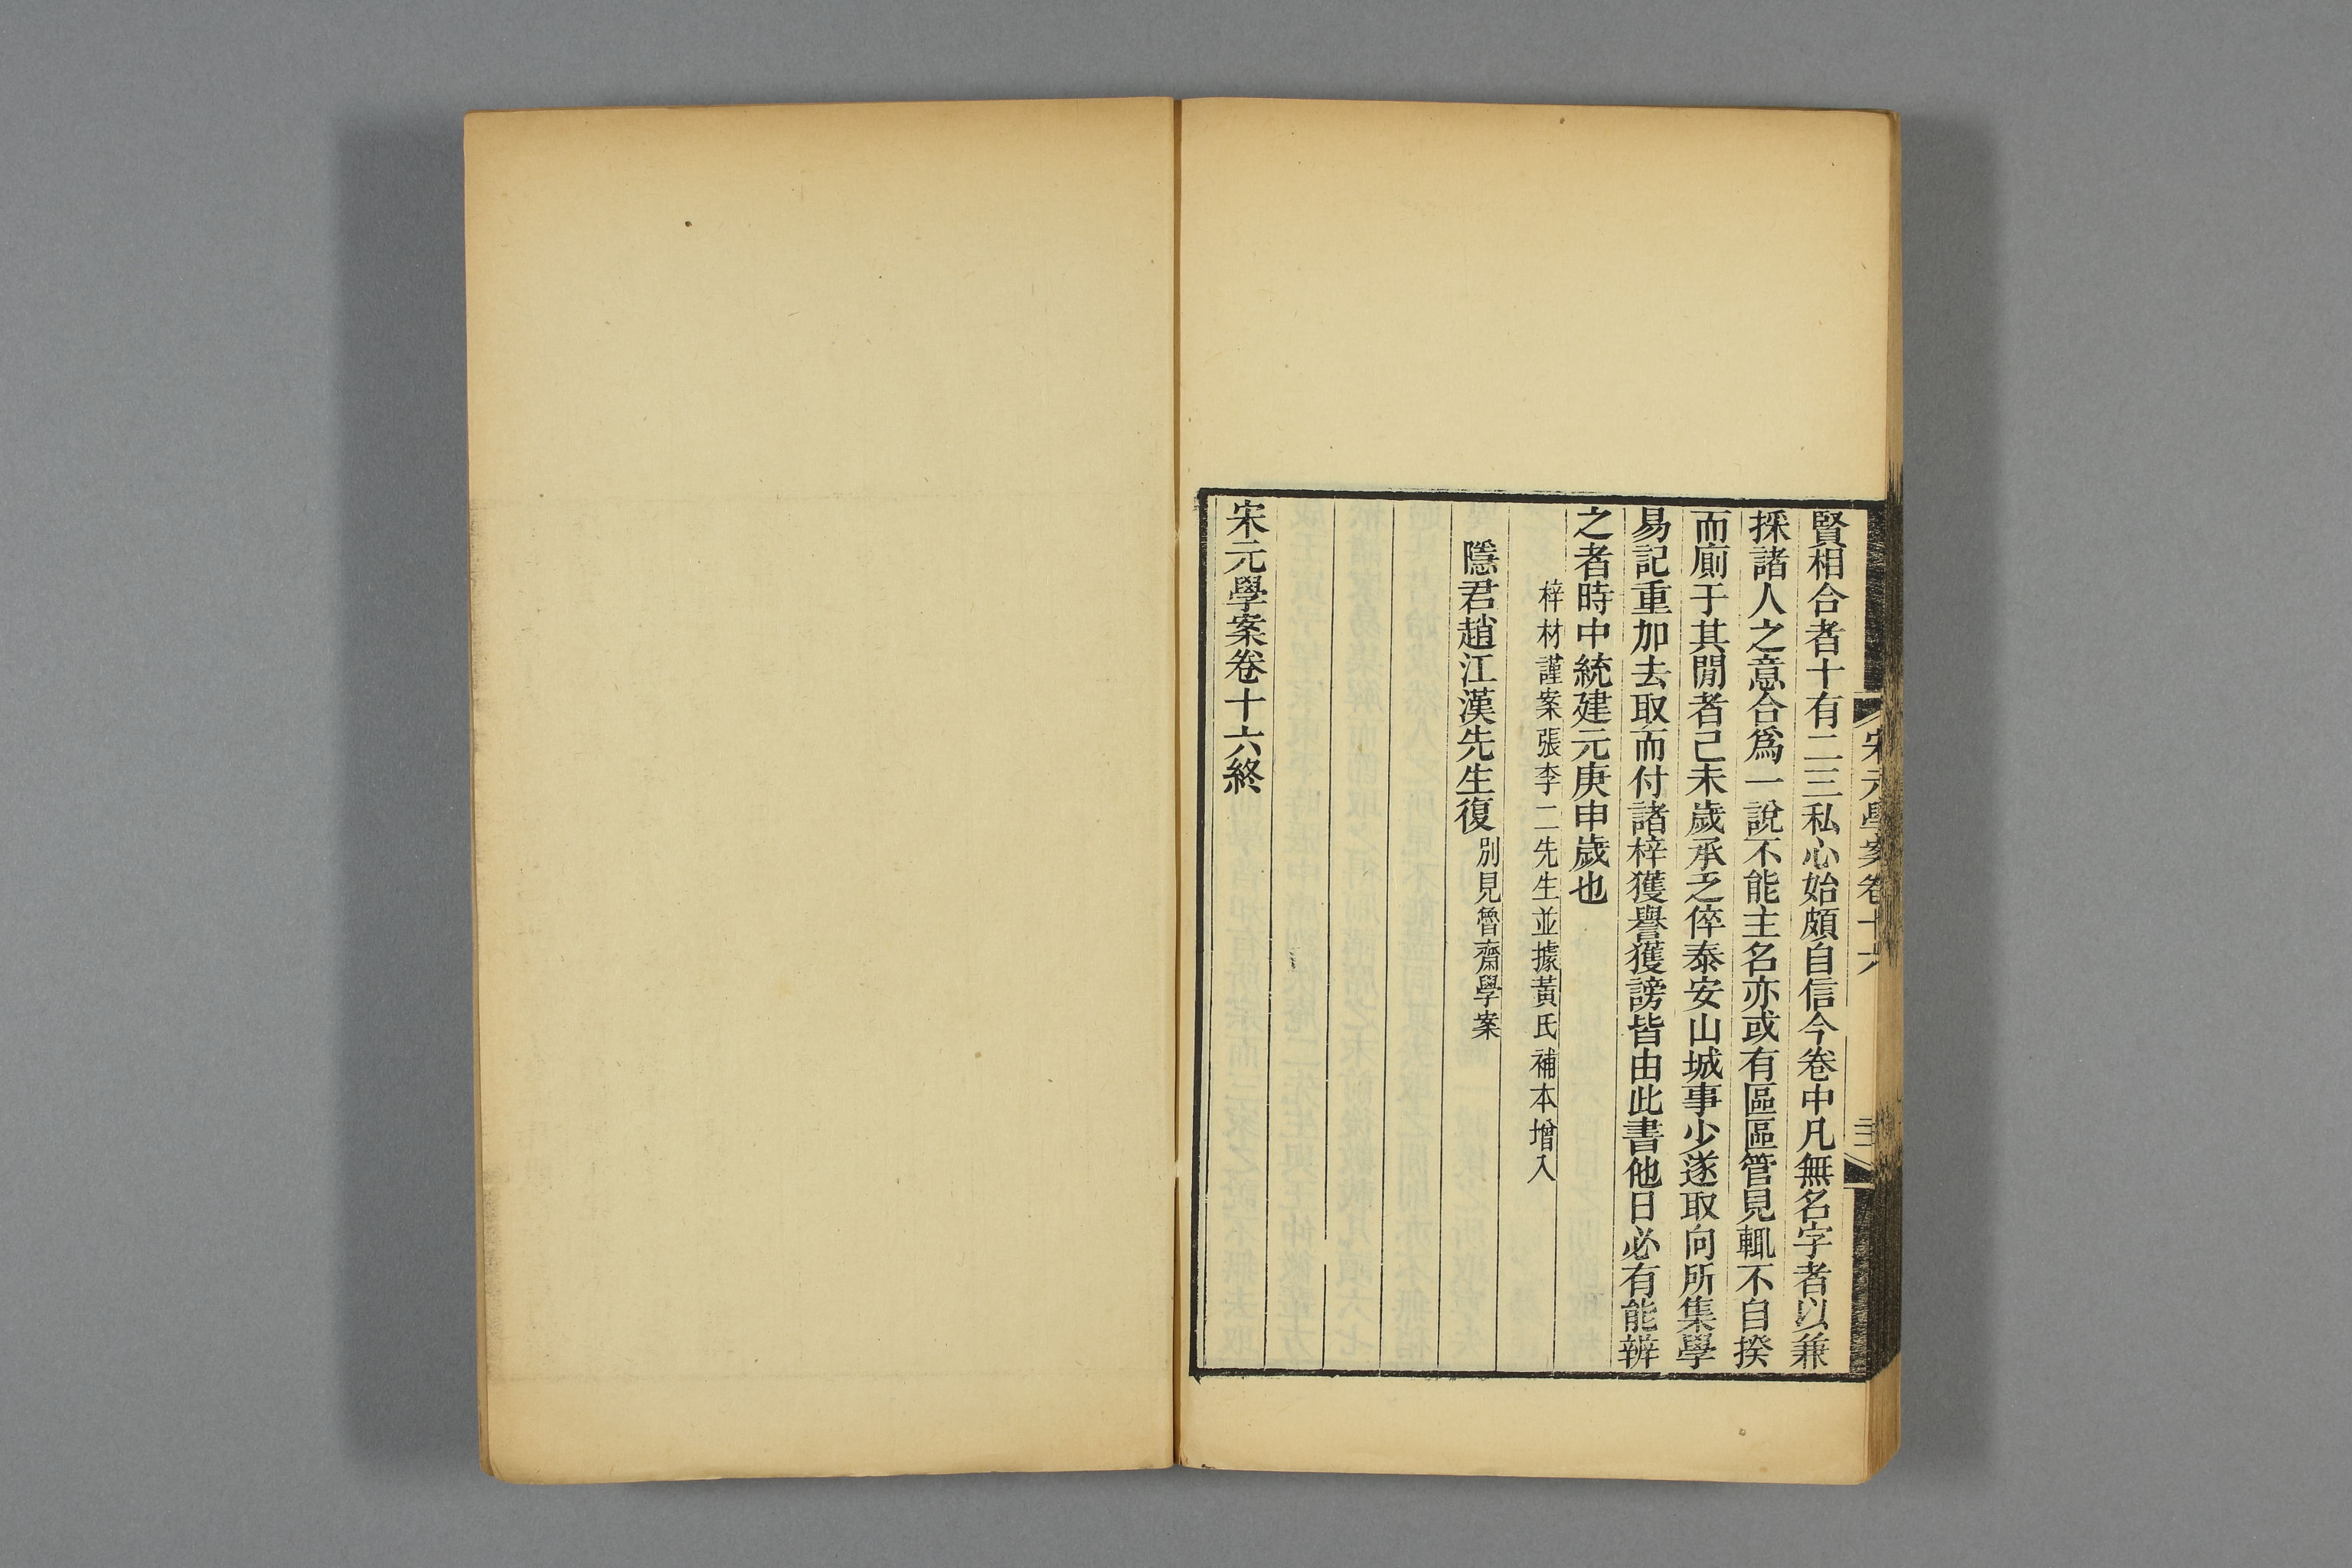 賢相合者十有二三私心始頗自信今卷中凡無名字者以兼
採諸人之意合爲一說不能主名亦或有區區管見輒不自揆
而廁于其閒者己未歲承乏倅泰安山城事少遂取向所集學
易記重加去取而付諸梓獲譽獲謗皆由此書他日必有能辨
之者時中統建元庚申歲也
梓材謹案張李二先生並據黃氏補本增入
隱君趙江漢先生復別見魯齋學案
宋元學案卷十六終
宋元學案卷十六